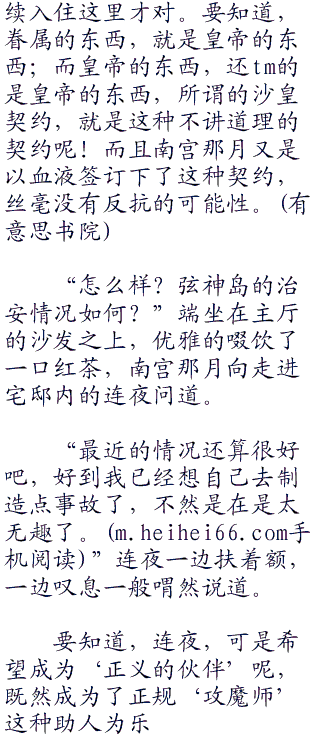 续入住这里才对。要知道，
眷属的东西，就是皇帝的东
西；而皇帝的东西，还tm的
是皇帝的东西，所谓的沙皇
契约，就是这种不讲道理的
契约呢！而且南宫那月又是
以血液签订下了这种契约，
丝毫没有反抗的可能性。(有
意思书院)
“怎么样？弦神岛的治
安情况如何？”端坐在主厅
的沙发之上，优雅的啜饮了
一口红茶，南宫那月向走进
宅邸内的连夜问道。
“最近的情况还算很好
吧，好到我已经想自己去制
造点事故了，不然是在是太
无趣了。(m.heihei66.com手
机阅读)”连夜一边扶着额，
一边叹息一般喟然说道。
要知道，连夜，可是希
望成为‘正义的伙伴’呢，
既然成为了正规‘攻魔师’
这种助人为乐